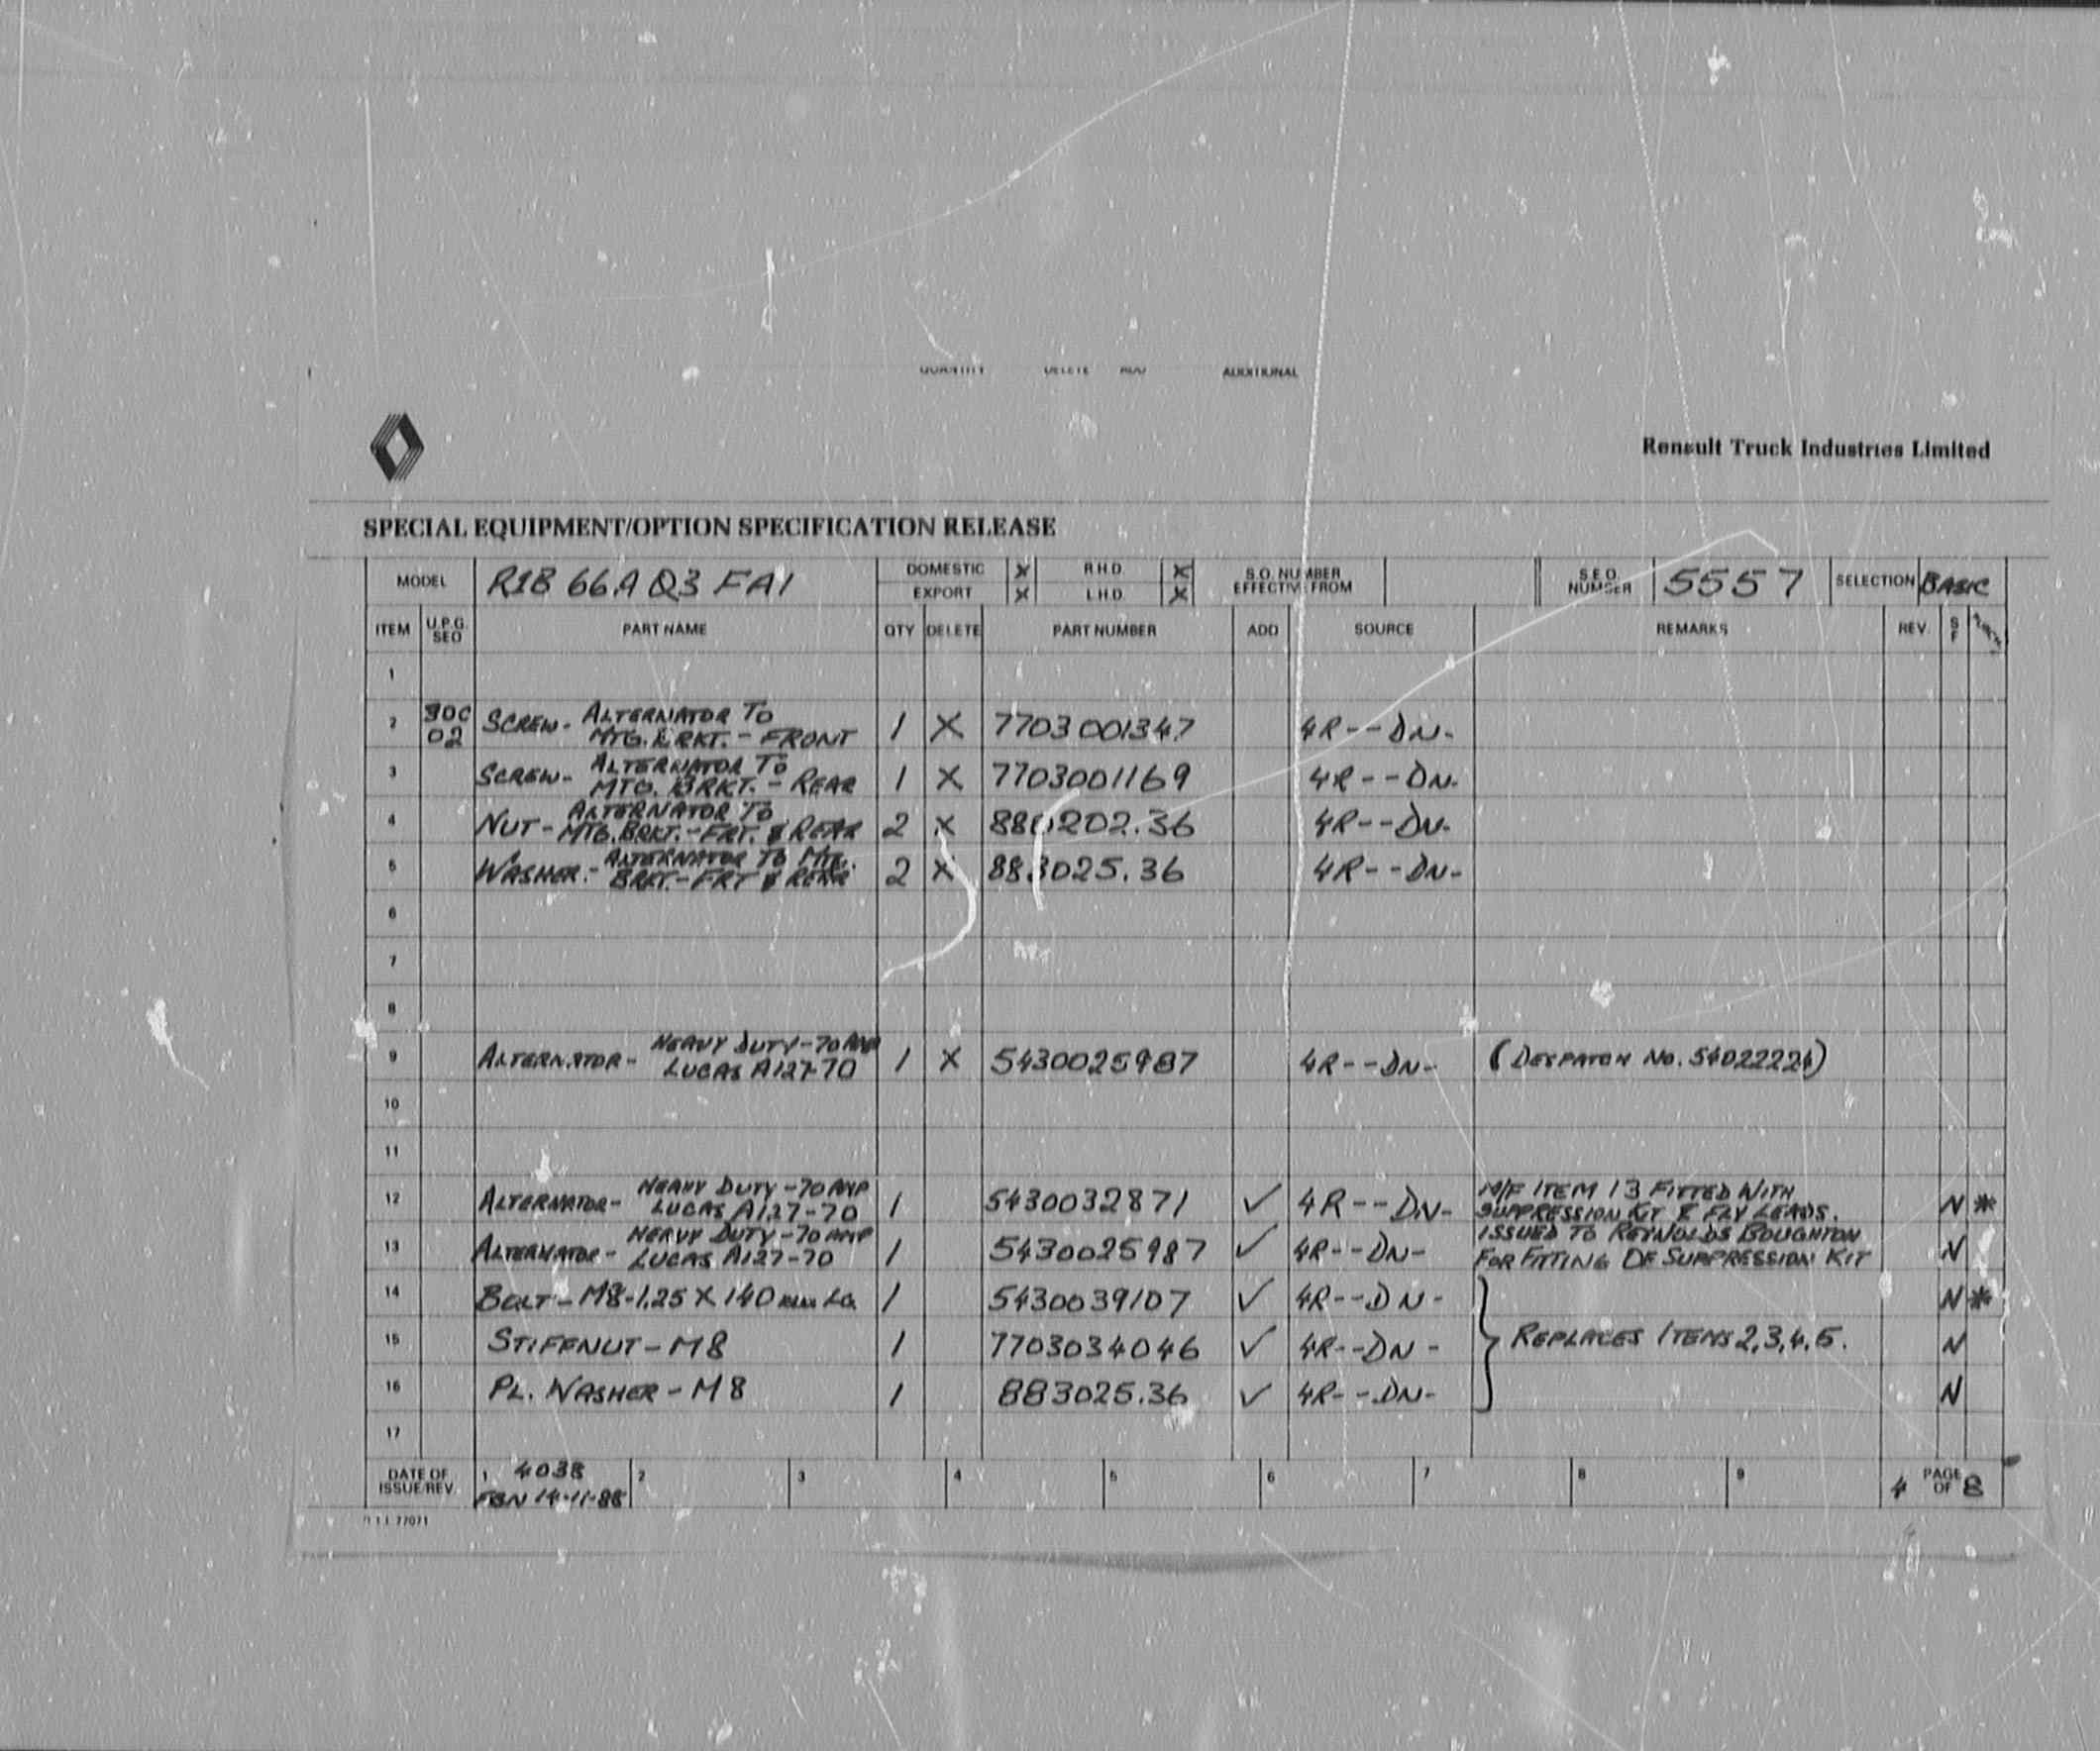 QUANTITY DELETE ADD ADDITIONAL
Renault Truck Industries Limited
SPECIAL EQUIPMENT/OPTION SPECIFICATION RELEASE
MODEL R1B 66A Q3 FA1 DOMESTIC X R.H.D. X S.O. NUMBER EFFECTIVE FROM S.E.O. NUMBER 5557 SELECTION BASIC
EXPORT X L.H.D. X
ITEM U.P.G. SEO PART NAME QTY DELETE PART NUMBER ADD SOURCE REMARKS REV. S F
1
2 30C 02 SCREW - ALTERNATOR TO MTG. BRKT. - FRONT 1 X 7703001347 4R--DN-
3 SCREW - ALTERNATOR TO MTG. BRKT. - REAR 1 X 7703001169 4R--DN-
4 NUT - ALTERNATOR TO MTG. BRKT. - FRT. & REAR 2 X 880202.36 4R--DN-
5 WASHER - ALTERNATOR TO MTG. BRKT. - FRT & REAR 2 X 883025.36 4R--DN-
6
7
8
9 ALTERNATOR - HEAVY DUTY - 70 AMP LUCAS A127-70 1 X 5430025987 4R--DN- (DESPATCH No.
10
11
12 ALTERNATOR - HEAVY DUTY - 70 AMP LUCAS A127-70 1 5430032871 ✓ 4R--DN- M/F ITEM 13 FITTED WITH SUPPRESSION KIT & FLY LEADS. N *
13 ALTERNATOR - HEAVY DUTY - 70 AMP LUCAS A127-70 1 5430025987 ✓ 4R--DN- ISSUED TO REYNOLDS BOUGHTON FOR FITTING OF SUPPRESSION KIT N
14 BOLT - M8-1.25 X 140 mm LG. 1 5430039107 ✓ 4R--DN- N *
15 STIFFNUT - M8 1 7703034046 ✓ 4R--DN- REPLACES ITEMS 2,3,4,5. N
16 PL. WASHER - M8 1 883025.36 ✓ 4R--DN- N
17
DATE OF ISSUE/REV. 1 4038 2 3 4 5 6 7 8 9 4 PAGE OF 8
14-11-88
77071